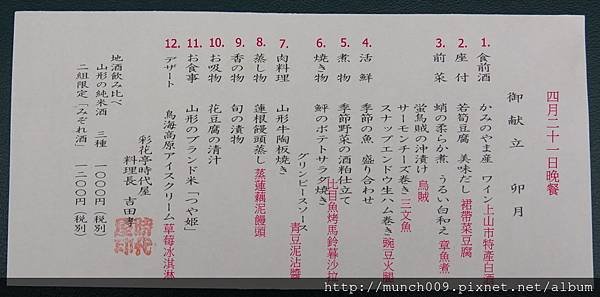 四月二十一日晚餐
御献立 卯月
1. 食前酒 かみのやま産 ワイン 上山市特産白酒
2. 座付 若筍豆腐 美味だし 裙帶菜豆腐
3. 前菜 蛸の柔らか煮 うるい白和え 章魚煮
蛍烏賊の沖漬け 烏賊
サーモンチーズ巻き 三文魚
スナップエンドウ生ハム巻き 豌豆火腿
4. 活鮮 季節の魚 盛り合わせ
5. 煮物 季節野菜の酒粕仕立て
6. 焼き物 鮃のポテトサラダ焼き 比目魚烤馬鈴暮沙拉
グリンピースソース 青豆泥沾醬
7. 肉料理 山形牛陶板焼き
8. 蒸し物 蓮根饅頭蒸し 蒸蓮藕泥饅頭
9. 香の物 旬の漬物
10. お吸物 花豆腐の清汁
11. お食事 山形のブランド米「つや姫」
12. デザート 鳥海高原アイスクリーム 草莓冰淇淋
彩花亭時代屋
料理長 吉田孝
時代屋印
地酒飲み比べ
山形の純米酒 三種 一〇〇〇円(税別)
二組限定「みぞれ酒」 一二〇〇円(税別)
http://munch009.pixnet.net/album